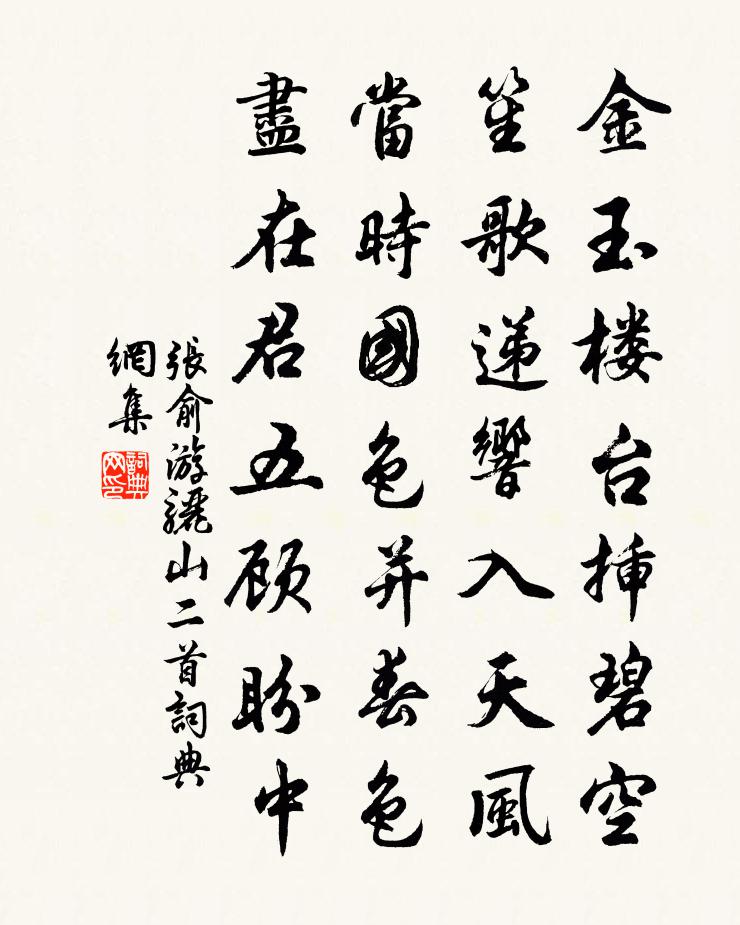 金玉楼台挿碧空
笙歌递響入天風
當時國色并春色
盡在君五顾盼中
張俞游驪山二首詞典
網集
詞典
网印